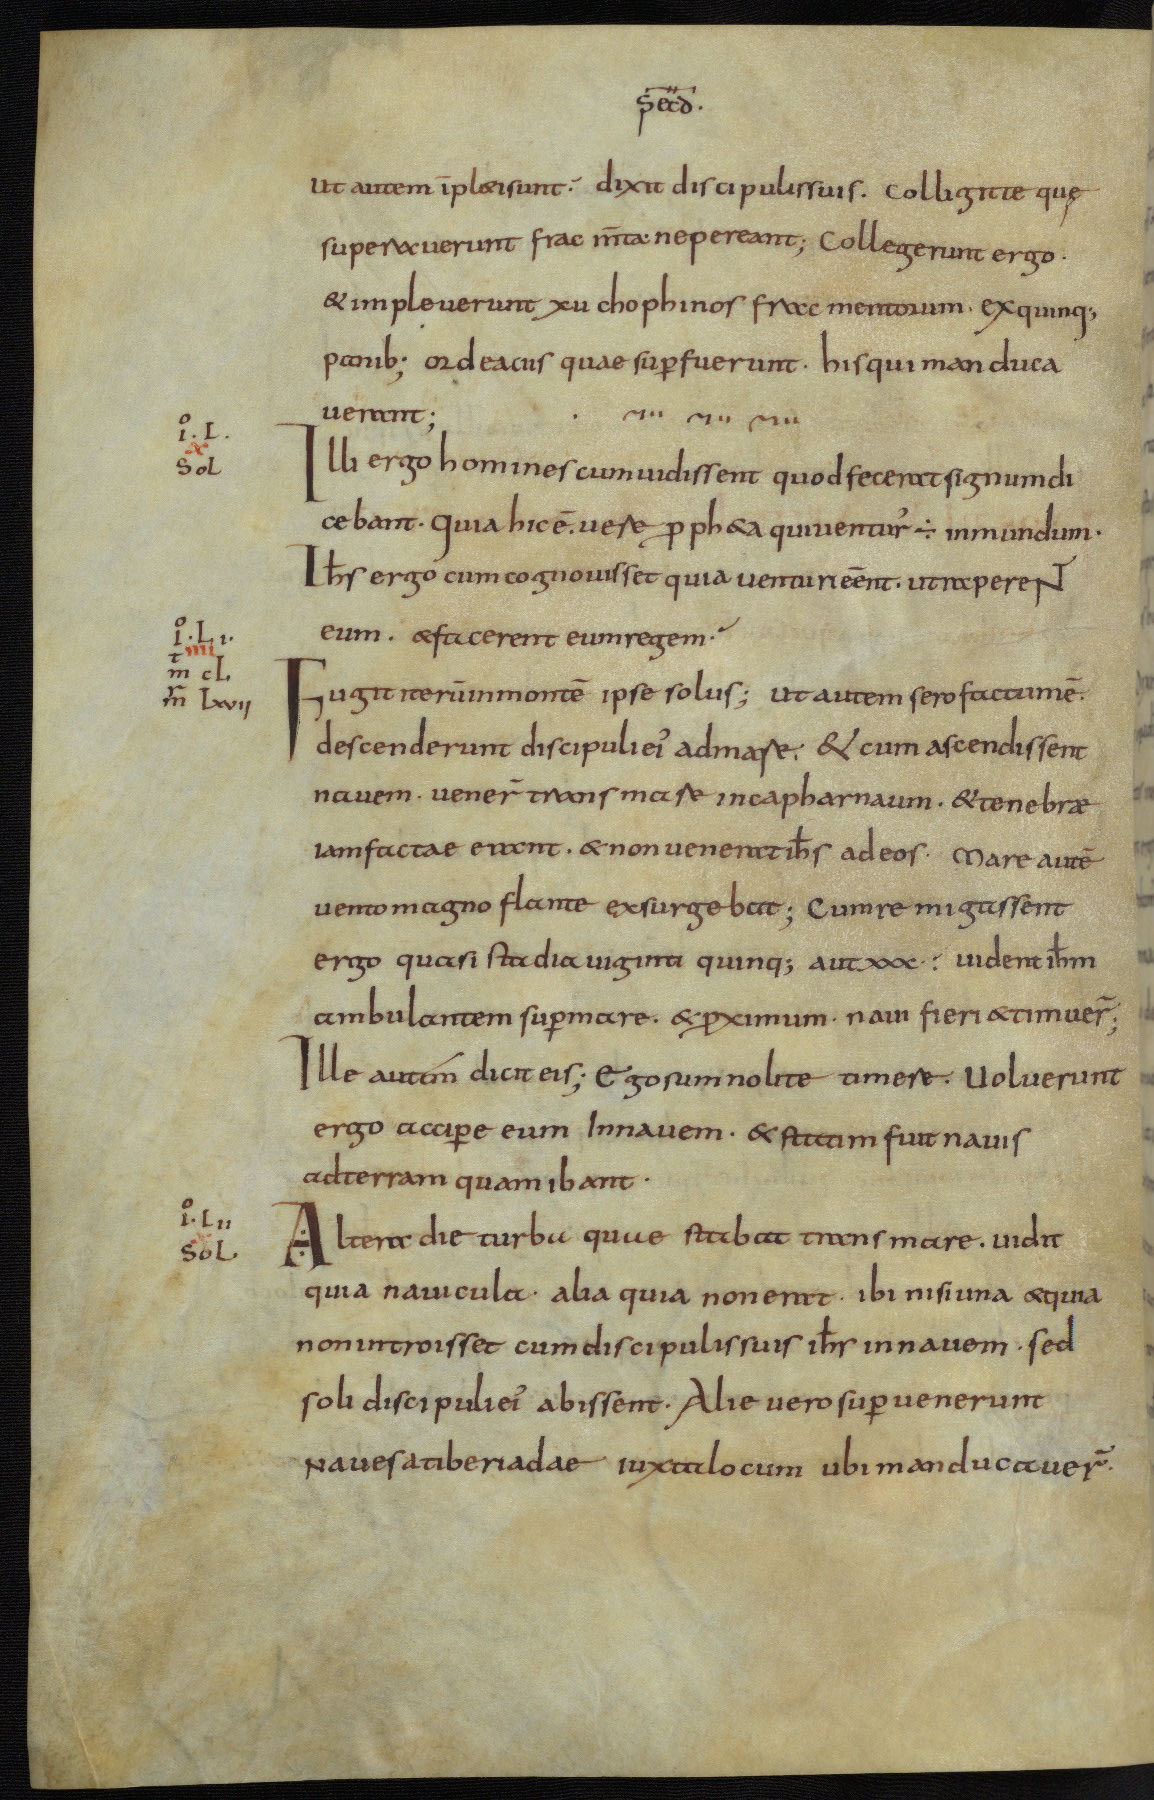 Secd.
ut autem īpl&isunt. dixit discipulissuis. Colligitte quę
superaverunt frac m̄ta nepereant; Collegerunt ergo.
& impleverunt xu chophinos fracmentorum. exquinq;
panib; ordeaciis quae suꝑfuerunt. hisqui manduca
verant;
I lli ergo homines cumvidissent quodfeceratsignumdi
i. L.
x
Sol
cebant. Quia hic ē. vere ꝓph&a quiventur̓ ÷ inmundum.
Ihs ergo cum cognovisset quia venturieēnt. utraperent
eum. &facerent eumregem.
i. Li.
iiii
mt cL
mr Lxvij
Fugit iterūinmontē ipse solus; ut autem sero factumē.
descenderunt discipulieı̓ admare. & cum ascendissent
navem. vener̄ transmare incapharnaum. &tenebræ
iamfactae erant. &nonveneratihs adeos. Mare autē
ventomagno flante exsurgebat; Cumremigassent
ergo quasi stadia viginti quinq; aut xxx. vident ihm
ambulantem suꝑmare. &ꝓximum. navi fieri &timuer̄;
Ille autm̄ dicit eis; Ego sum nolite timere. Voluerunt
ergo acciꝑe eum Innavem. & statim fuit navis
adterram quam ibant.
i. Lii
x
SoL
Altera die turba quae stabat transmare. vidit
quia navicula. alia quia nonerat. ibi nisiuna &quia
nonintroisset cumdiscipulissuis ihs innavem. sed
soli discipulieı̓ abissent. Alie vero suꝑvenerunt
Navesatiberiadae iuxtalocum ubimanducaver̄.